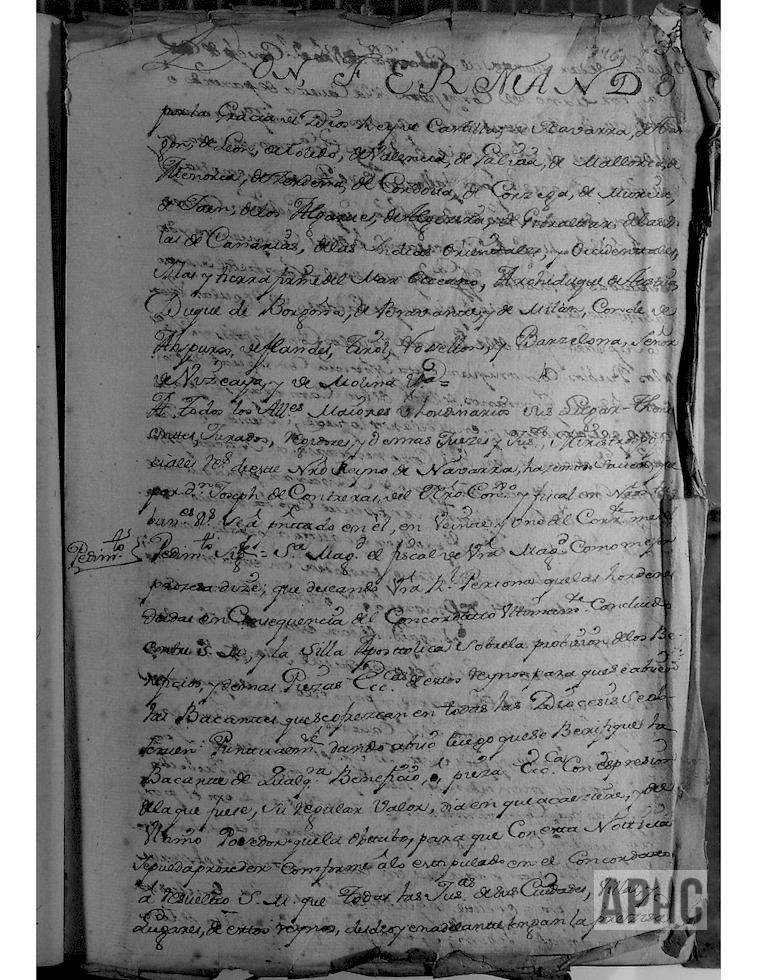 DON FERNANDO
por la Gracia de Dios Rey de Castilla, de Navarra, de Ara
gon, de Leon, de Toledo, de Valencia, de Galicia, de Mallorca, de
Menorca, de Zerdeña, de Cordova, de Corzega, de Murcia,
de Jaen, de los Algarves, de Algezira, de Gibraltar, de las Is
las de Canarias, de las Indias Orientales, y Occidentales,
Islas y tierra firme del Mar Occeano, Archiduque de Austria,
Duque de Borgoña, de Bravante, y de Milan, Conde de
Aspurg, de Flandes, Tirol, Rosellon, y Barzelona, Señor
de Vizcaya, y de Molina &ª =
A Todos los Allˢ Maiores y hordinarios sus Lugar-Theni
entes, Jurados, Rexidores, y demas Juezes y
ciales Rˢ de este Nro Reyno de Navarra, hazemos saver, que
por dⁿ Joseph de Contreras, del Nro Conᵒ y fiscal en Nros tri
bunˢ Rˢ Se á presentado en él, en Veinte y Uno del Corrᵗᵉ mes el
Pedimᵗᵒ
Pedimᵗᵒ Sigᵗᵉ = Sª Magᵈ el fiscal de Vra Magᵈ Como mejor
prozeda dize; que deseando Vra Rˡ Persona que las hordenes
dadas en Consequencia del Concordato Ultimamᵗᵉ Concluido
entre S. M., y la Silla Apostolica, Sobre la probision de los Be-
neficios, y demas Piezas Eccᶜᵃˢ de estos reynos, para que se
las Bacantes que se ofrezcan en todas las Diocesis Se ob-
serven Puntualmᵗᵉ dando abiso luego que se Berifique la
Bacante de qualqʳᵃ Beneficio, ó pieza Eccᶜᵃ Con expresion
de la que fuese, Su regular Valor, dia en que acaeciere, y del
Ultimo Posedor que la obtubo, para que Con esta Noticia
Se pueda prozeder conforme á lo estipulado en el Concordato,
á resuelto S. M. que todas las Jusᵃˢ de sus Ciudades, Villas, y
Lugares, de estos reynos, desde oy en adelante tengan la precisa
APJC